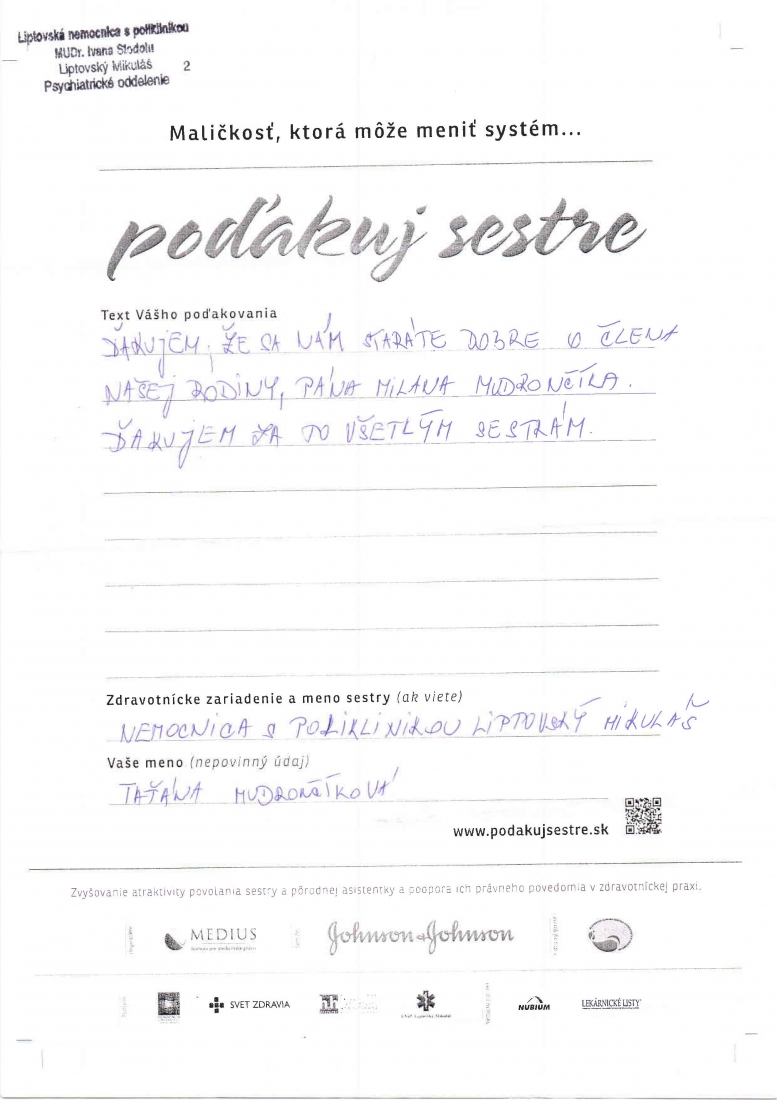 Liptovská nemocnica s poliklinikou
MUDr. Ivana Stodolu
Liptovský Mikuláš 2
Psychiatrické oddelenie
Maličkosť, ktorá môže meniť systém...
poďakuj sestre
Text Vášho poďakovania
ĎAKUJEM, ŽE SA NÁM STARÁTE DOBRE O ČLENA
NAŠEJ RODINY, PÁNA MILANA MUDRONČÍKA.
ĎAKUJEM ZA TO VŠETKÝM SESTRÁM.
Zdravotnícke zariadenie a meno sestry (ak viete)
NEMOCNICA S POLIKLINIKOU LIPTOVSKÝ MIKULÁŠ
Vaše meno (nepovinný údaj)
TAŤÁNA MUDRONČÍKOVÁ
www.podakujsestre.sk
Zvyšovanie atraktivity povolania sestry a pôrodnej asistentky a poopora ich právneho povedomia v zdravotníckej praxi.
MEDIUS
Johnson & Johnson
SVET ZDRAVIA
NUBIUM
LEKÁRNICKÉ LISTY